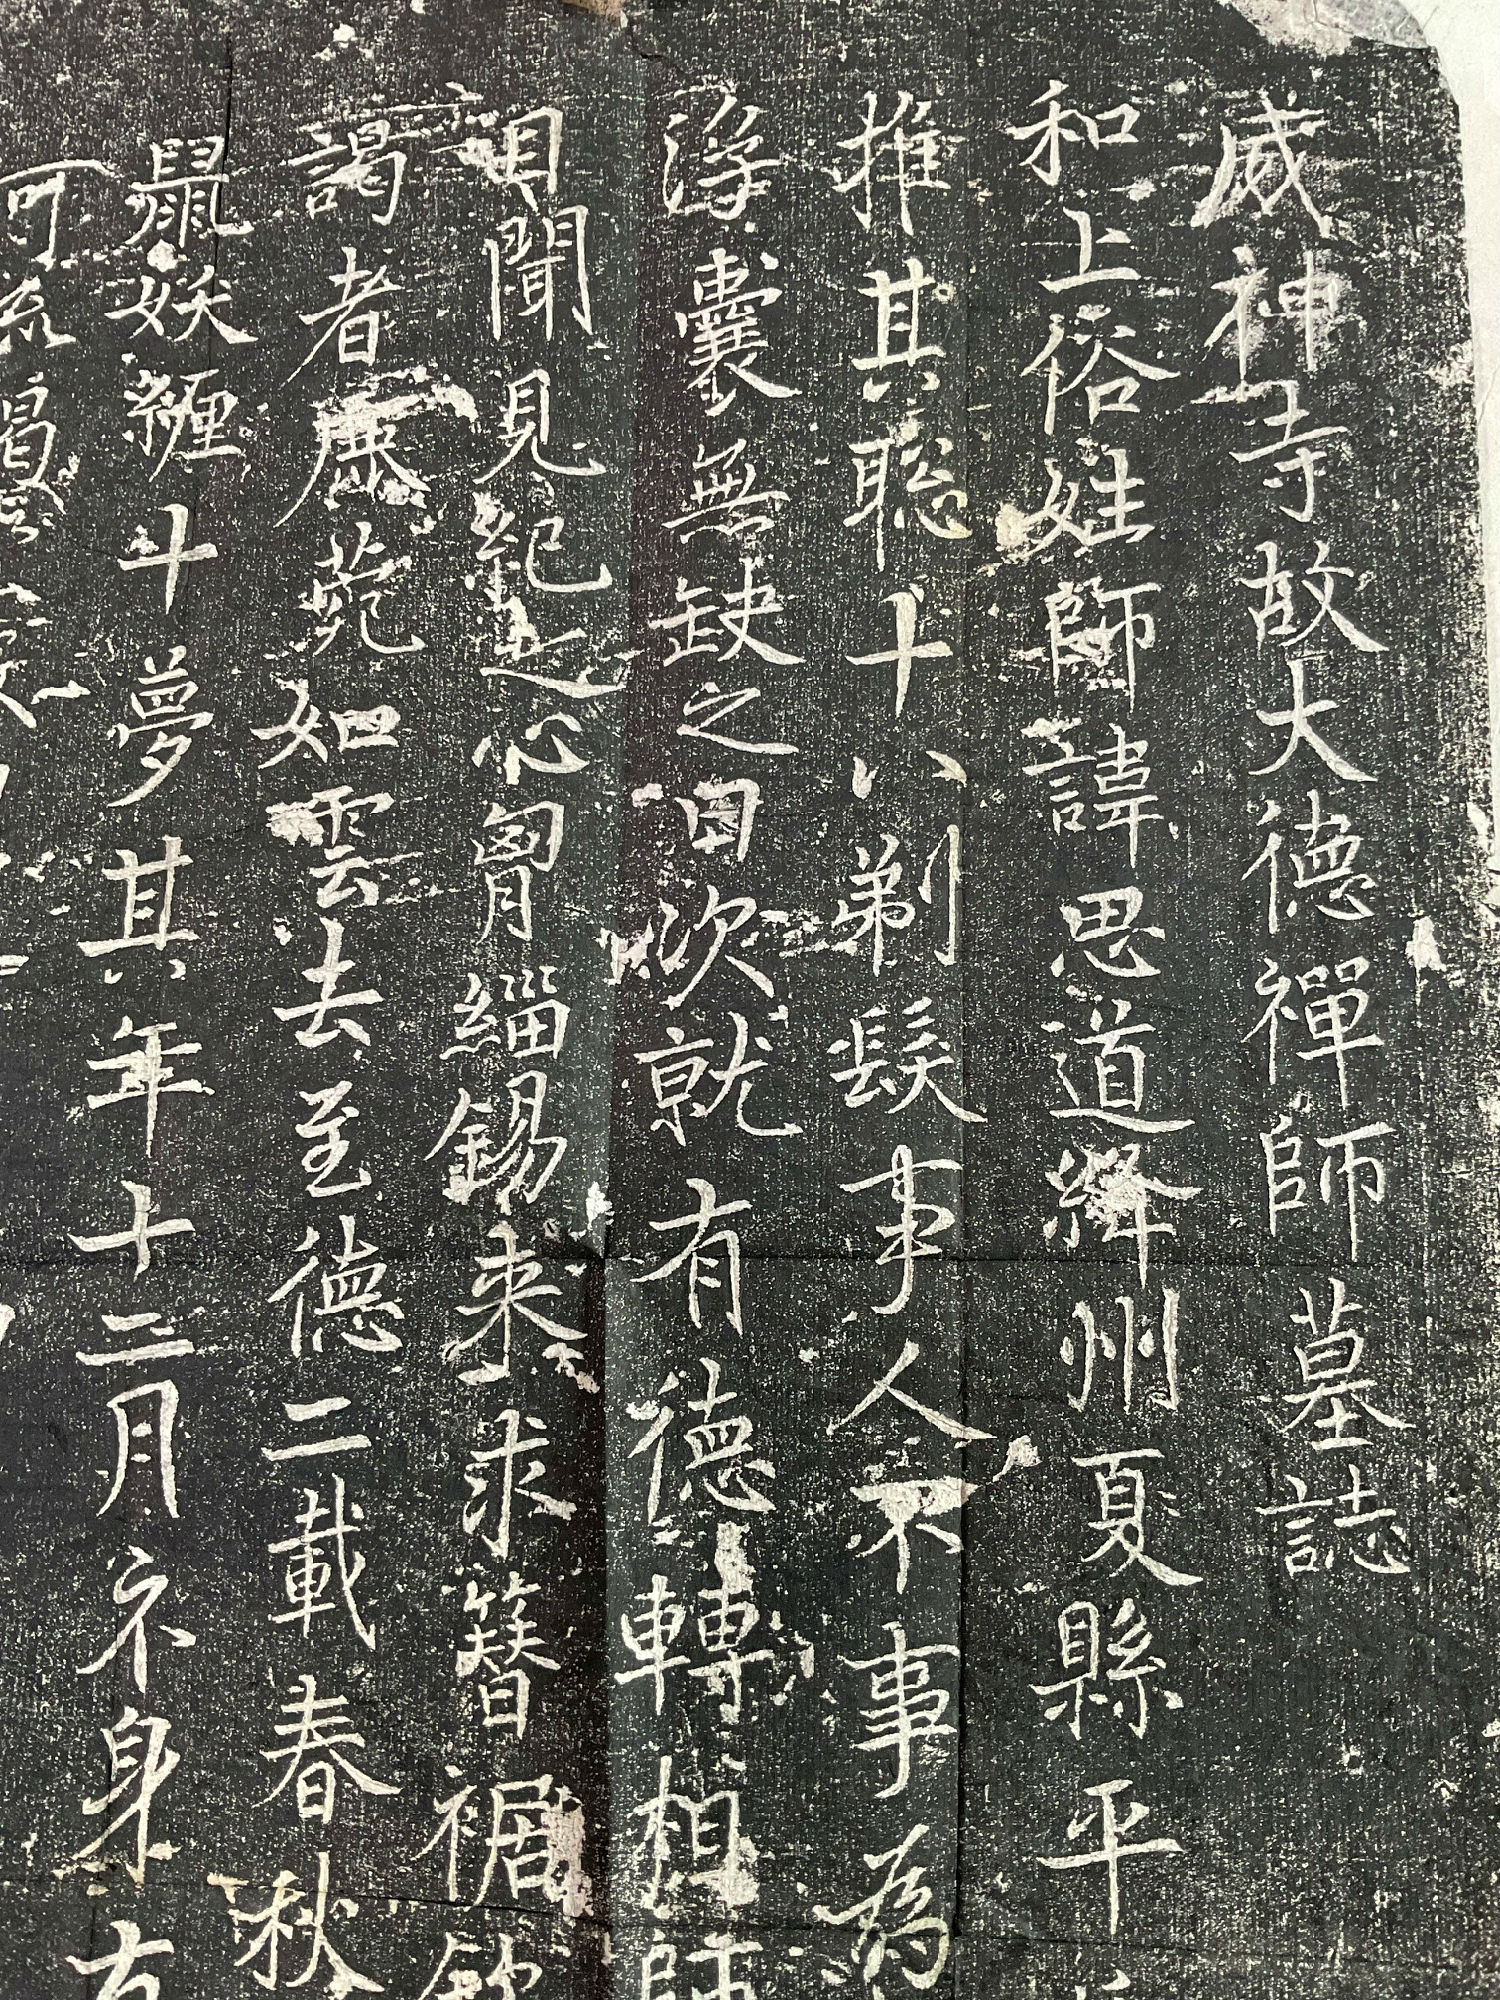 威神寺故大德禪師墓誌
和上俗姓師諱思道絳州夏縣平
推其聡十八剃髮事人不事為
浮囊無缺之日次就有德轉相師
目聞見紀之心胷緇錫来求簪裾欽
謁者麻苑如雲去至德二載春秋
鼠妖纏十夢其年十二月示身有
可